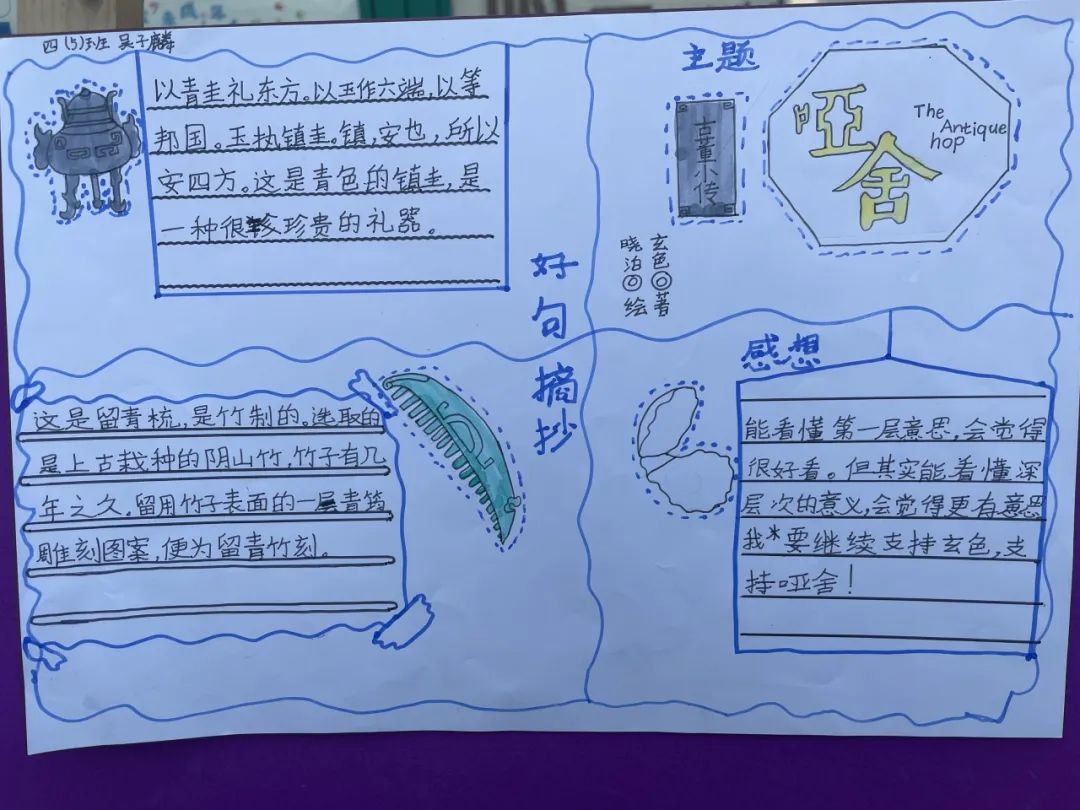 四(5)班 吴子麟
以青圭礼东方。以玉作六端,以等
邦国。玉执镇圭。镇,安也,所以
安四方。这是青色的镇圭,是
一种很珍贵的礼器。
好句摘抄
这是留青梳,是竹制的。选取的
是上古栽种的阴山竹,竹子有几
年之久。留用竹子表面的一层青筠
雕刻图案,便为留青竹刻。
主题
古董小传
哑舍
The
Antique
hop
玄色◎著
晓泊◎绘
感想
能看懂第一层意思,会觉得
很好看。但其实能看懂深
层次的意义,会觉得更有意思
我*要继续支持玄色,支
持哑舍!